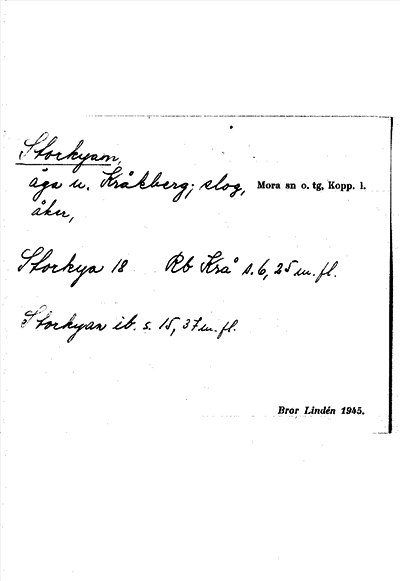 Storkyam,
äga u. Kråkberg; slog, Mora sn o. tg, Kopp. l.
åker,
Storkya 18 Rb Krå s. 6, 25 m. fl.
Storkyan ib. s. 15, 37 m. fl.
Bror Lindén 1945.